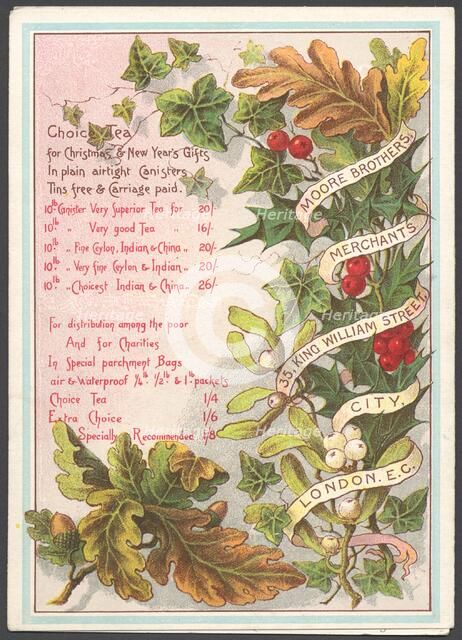 Choice Tea
for Christmas & New Year's Gifts
In plain airtight Canisters
Tins free & Carriage paid.
10lb Canister Very Superior Tea for 20/-
10lb " Very good Tea " 16/-
10lb " Fine Ceylon, Indian & China " 20/-
10lb " Very fine Ceylon & Indian " 20/-
10lb " Choicest Indian & China " 26/-
For distribution among the poor
And for Charities
In Special parchment Bags
air & Waterproof 1/4lb 1/2lb & 1lb packets
Choice Tea 1/4
Extra Choice 1/6
Specially Recommended 1/8
MOORE BROTHERS,
MERCHANTS
35, KING WILLIAM STREET,
CITY,
LONDON. E.C.
Heritage
Heritage
Heritage
Heritage